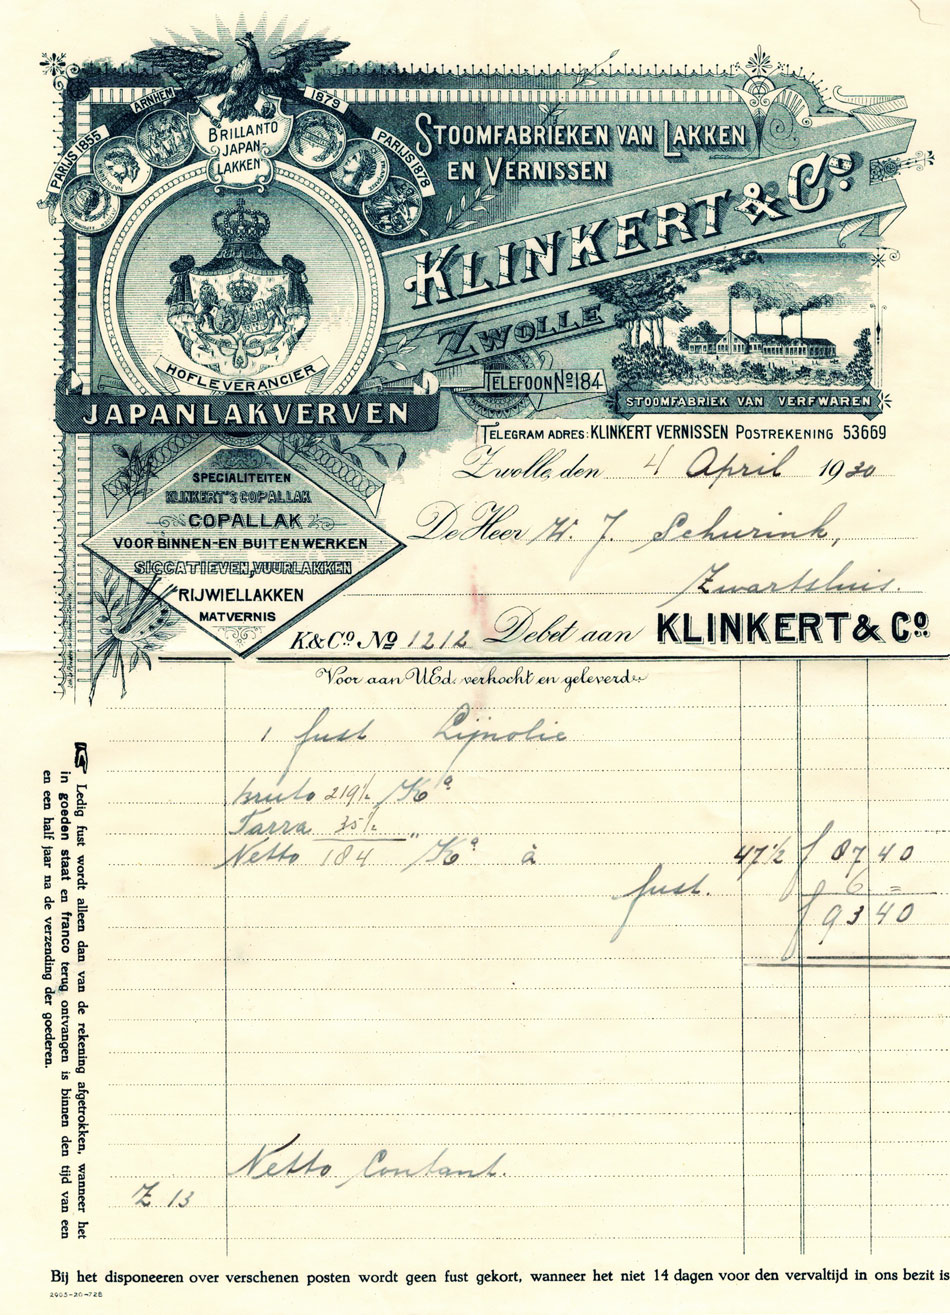 PARIJS 1855
ARNHEM
1879
PARIJS 1878
BRILLANTO
JAPAN-
LAKKEN
STOOMFABRIEKEN VAN LAKKEN
EN VERNISSEN
KLINKERT & Co.
ZWOLLE
HOFLEVERANCIER
TELEFOON No 184
JAPANLAKVERVEN
STOOMFABRIEK VAN VERFWAREN
TELEGRAM ADRES: KLINKERT VERNISSEN POSTREKENING 53669
Zwolle, den 4 April 1930
SPECIALITEITEN
KLINKERT'S COPALLAK
COPALLAK
VOOR BINNEN- EN BUITENWERKEN
SICCATIEVEN, VUURLAKKEN
RIJWIELLAKKEN
MATVERNIS
De Heer W. J. Schurink,
Zwartsluis.
K. & Co. No 1212 Debet aan KLINKERT & Co.
Voor aan UEd. verkocht en geleverde
1 fust Lijnolie
bruto 219½ Ko
Tarra 35½ "
Netto 184 Ko à 47½ f 87 40
fust. 6 =
f 93 40
Netto Contant.
Z 13
☞ Ledig fust wordt alleen dan van de rekening afgetrokken, wanneer het
in goeden staat en franco terug ontvangen is binnen den tijd van een
en een half jaar na de verzending der goederen.
Bij het disponeeren over verschenen posten wordt geen fust gekort, wanneer het niet 14 dagen voor den vervaltijd in ons bezit is
2905-20-728